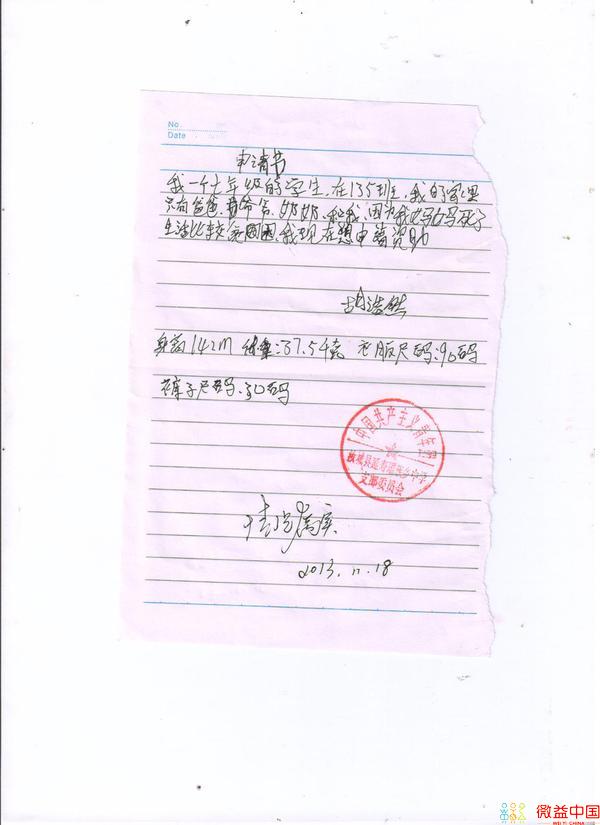 No
Date
申请书
我一个七年级的学生,在135班,我的家里
只有爸爸、爷爷、奶奶、和我,因为我妈妈死了
生活比较困,我现在想申请资助
胡浩然
身高142m 体重:37.5千克 衣服尺码:90码
裤子尺码:30码
中国共产主义青年团
汝城县延寿瑶族乡中学
支部委员会
情况属实
2013.11.18
微益中国
WEIYI CHINA